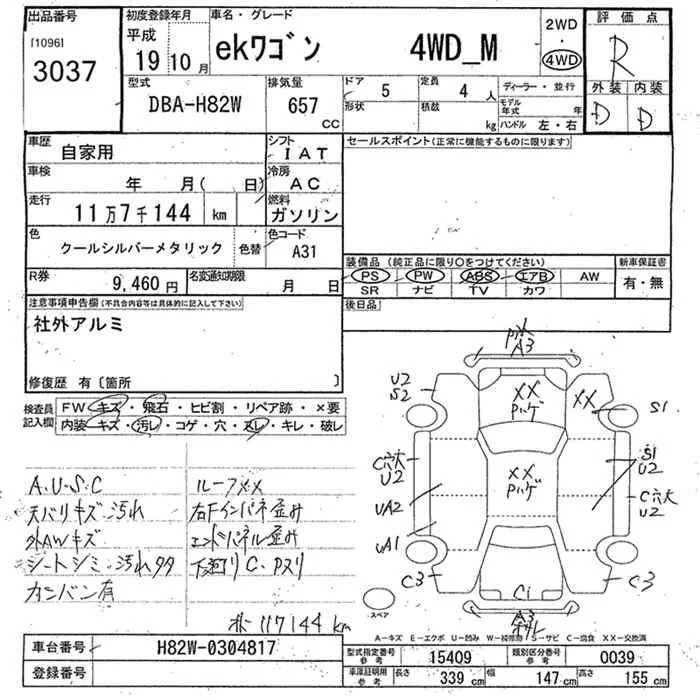 出品番号
[1096]
3037
初度登録年月
平成
19 10 月
車名・グレード
ekワゴン 4WD_M
2WD
・
4WD
評価点
R
外装 内装
D D
型式
DBA-H82W
排気量
657
CC
ドア
5
形状
定員
4 人
積載
kg
ディーラー・並行
モデル年式 年
ハンドル 左・右
車歴
自家用
シフト
IAT
車検
年 月( 日)
冷房
AC
走行
11万7千144 km
燃料
ガソリン
色
クールシルバーメタリック
色替
色コード
A31
R券
9,460 円
名変通知期限
月 日
セールスポイント(正常に機能するものに限ります)
装備品 (純正品に限り〇をつけてください)
PS PW ABS エアB AW
SR ナビ TV カワ
新車保証書
有・無
後日品
注意事項申告欄(不具合内容等は具体的に記入して下さい)
社外アルミ
修復歴 有〔箇所 〕
検査員
記入欄
FW キズ・飛石・ヒビ割・リペア跡・×要
内装・キズ・汚レ・コゲ・穴・スレ・キレ・破レ
A.U.S.C
天バリキズ汚れ
外AWキズ
シートシミ・汚れ多々
カンバン有
ルーフXX
右Fインパネ歪み
エンドパネル歪み
下廻りC・Pスリ
117144 km
A3
U2
S2
XX
Pハゲ
XX
S1
C穴大
U2
XX
Pハゲ
S1
U2
UA2
C穴大
U2
UA1
C3
C1
C3
スペア
A-キズ E-エクボ U-凹み W-補修跡 S-サビ C-腐食 XX-交換済
車台番号
H82W-0304817
登録番号
型式指定番号
参考
15409
類別区分番号
参考
0039
車庫証明用
参考
長さ
339 cm
幅
147 cm
高さ
155 cm